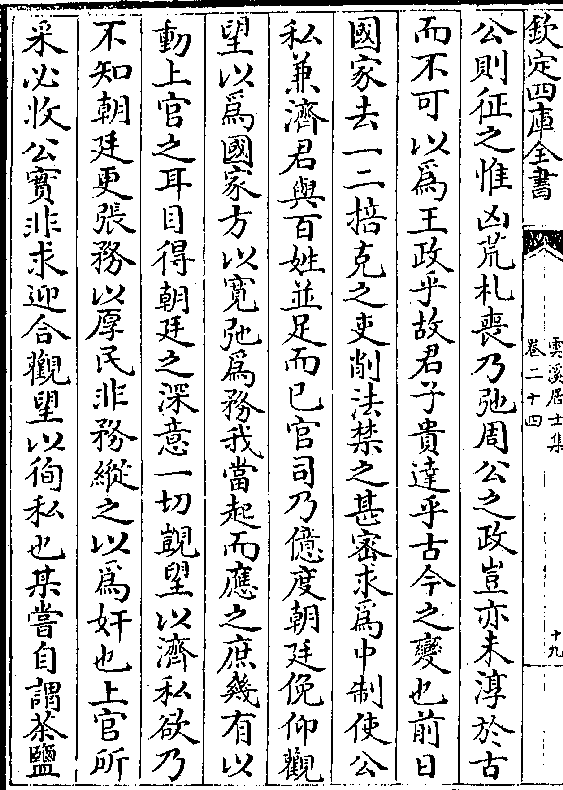 欽定四庫全書
雲溪居士集
卷二十四
十九
公則征之惟凶荒札喪乃弛周公之政豈亦未淳於古
而不可以爲王政乎故君子貴達乎古今之變也前日
國家去一二掊克之吏削法禁之甚密求爲中制使公
私兼濟君與百姓並足而已官司乃億度朝廷俛仰觀
望以爲國家方以寛弛爲務我當起而應之庶幾有以
動上官之耳目得朝廷之深意一切覬望以濟私欲乃
不知朝廷更張務以厚民非務縱之以爲奸也上官所
采必收公實非求迎合觀望以徇私也某嘗自謂茶鹽